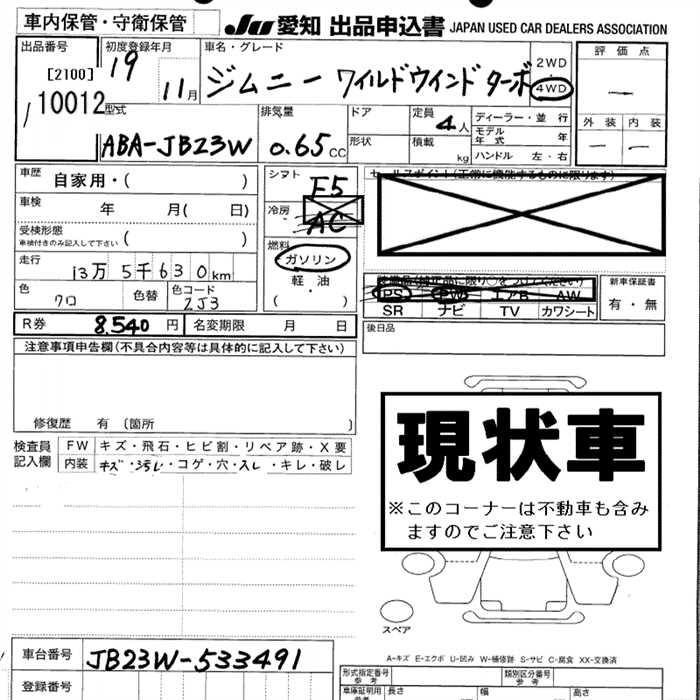 車内保管・守衛保管
JU 愛知 出品申込書 JAPAN USED CAR DEALERS ASSOCIATION
出品番号
[2100]
10012
初度登録年月
19
11月
車名・グレード
ジムニー ワイルドウインド ターボ
2WD
4WD
評価点
ー
外装 内装
ー ー
型式
ABA-JB23W
排気量
0.65CC
ドア
形状
定員
4人
積載
kg
ディーラー・並行
モデル年式 年
ハンドル 左・右
車歴
自家用・( )
車検
年 月( 日)
受検形態
車検付きのみ記入して下さい ( )
走行
13万5千630km
色
クロ
色替
色コード
2J3
シフト
F5
冷房
AC
燃料
ガソリン
軽油
( )
セールスポイント(正常に機能するものに限ります)
装備品(純正品に限り○をつけてください)
PS PW エアB AW
SR ナビ TV カワシート
新車保証書
有・無
R券 8.540 円 名変期限 月 日
後日品
注意事項申告欄(不具合内容等は具体的に記入して下さい)
修復歴 有 (箇所 )
検査員記入欄
FW キズ・飛石・ヒビ割・リペア跡・X要
内装 キズ・汚レ・コゲ・穴・スレ・キレ・破レ
現状車
※このコーナーは不動車も含み
ますのでご注意下さい
スペア
A-キズ E-エクボ U-凹み W-補修跡 S-サビ C-腐食 XX-交換済
車台番号 JB23W-533491
登録番号
形式指定番号
参考
類別区分番号
参考
車庫証明用
参考
長さ 幅 高さ